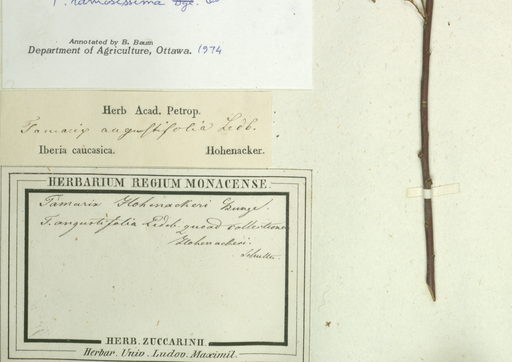 T. ramosissima
Annotated by B. Baum
Department of Agriculture, Ottawa. 1974
Herb Acad. Petrop.
Tamarix angustifolia Ledb.
Iberia caucasica. Hohenacker.
HERBARIUM REGIUM MONACENSE
Tamarix Hohenackeri Bunge.
T. angustifolia Ledeb. quoad collectionem
Hohenackeri.
HERB. ZUCCARINII.
Herbar. Univ. Ludov. Maximil.